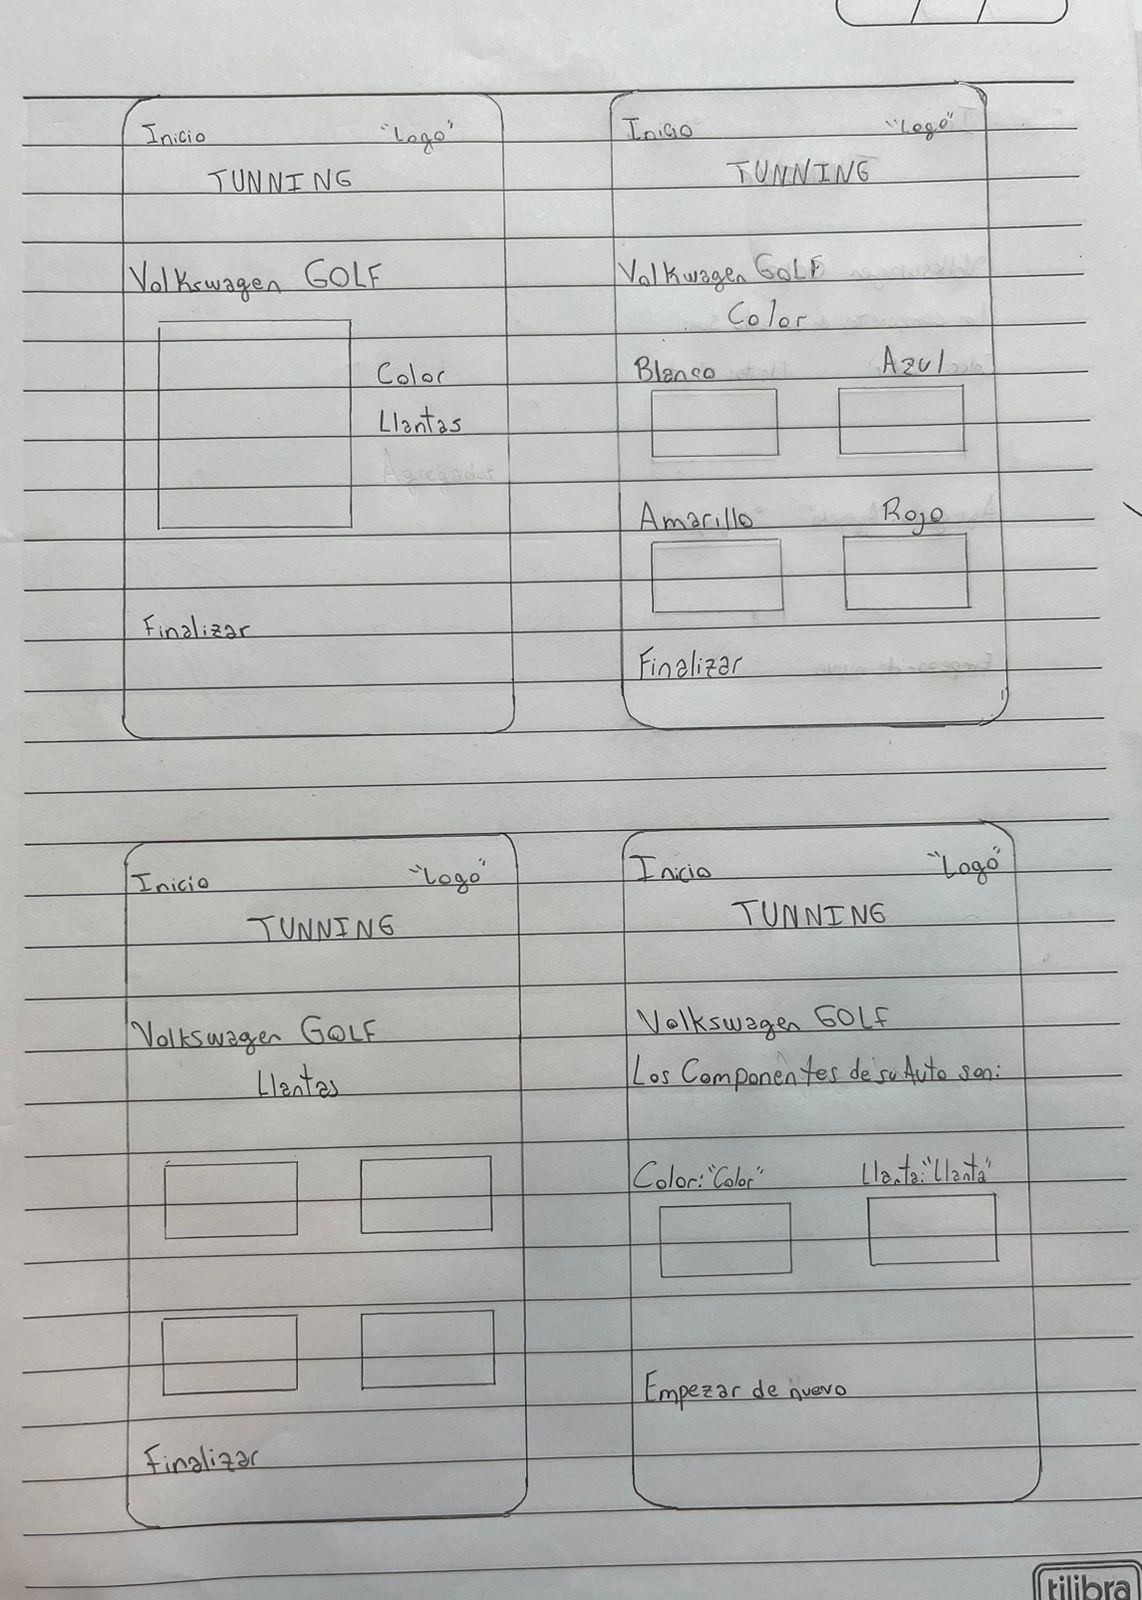 Inicio "Logo"
TUNNING
Volkswagen GOLF
Color
Llantas
Agregados
Finalizar
Inicio "Logo"
TUNNING
Volkwagen GOLF
Color
Blanco Azul
Amarillo Rojo
Finalizar
Inicio "Logo"
TUNNING
Volkswagen GOLF
Llantas
Finalizar
Inicio "Logo"
TUNNING
Volkswagen GOLF
Los Componentes de su Auto son:
Color: "Color" Llanta: "Llanta"
Empezar de nuevo
tilibra